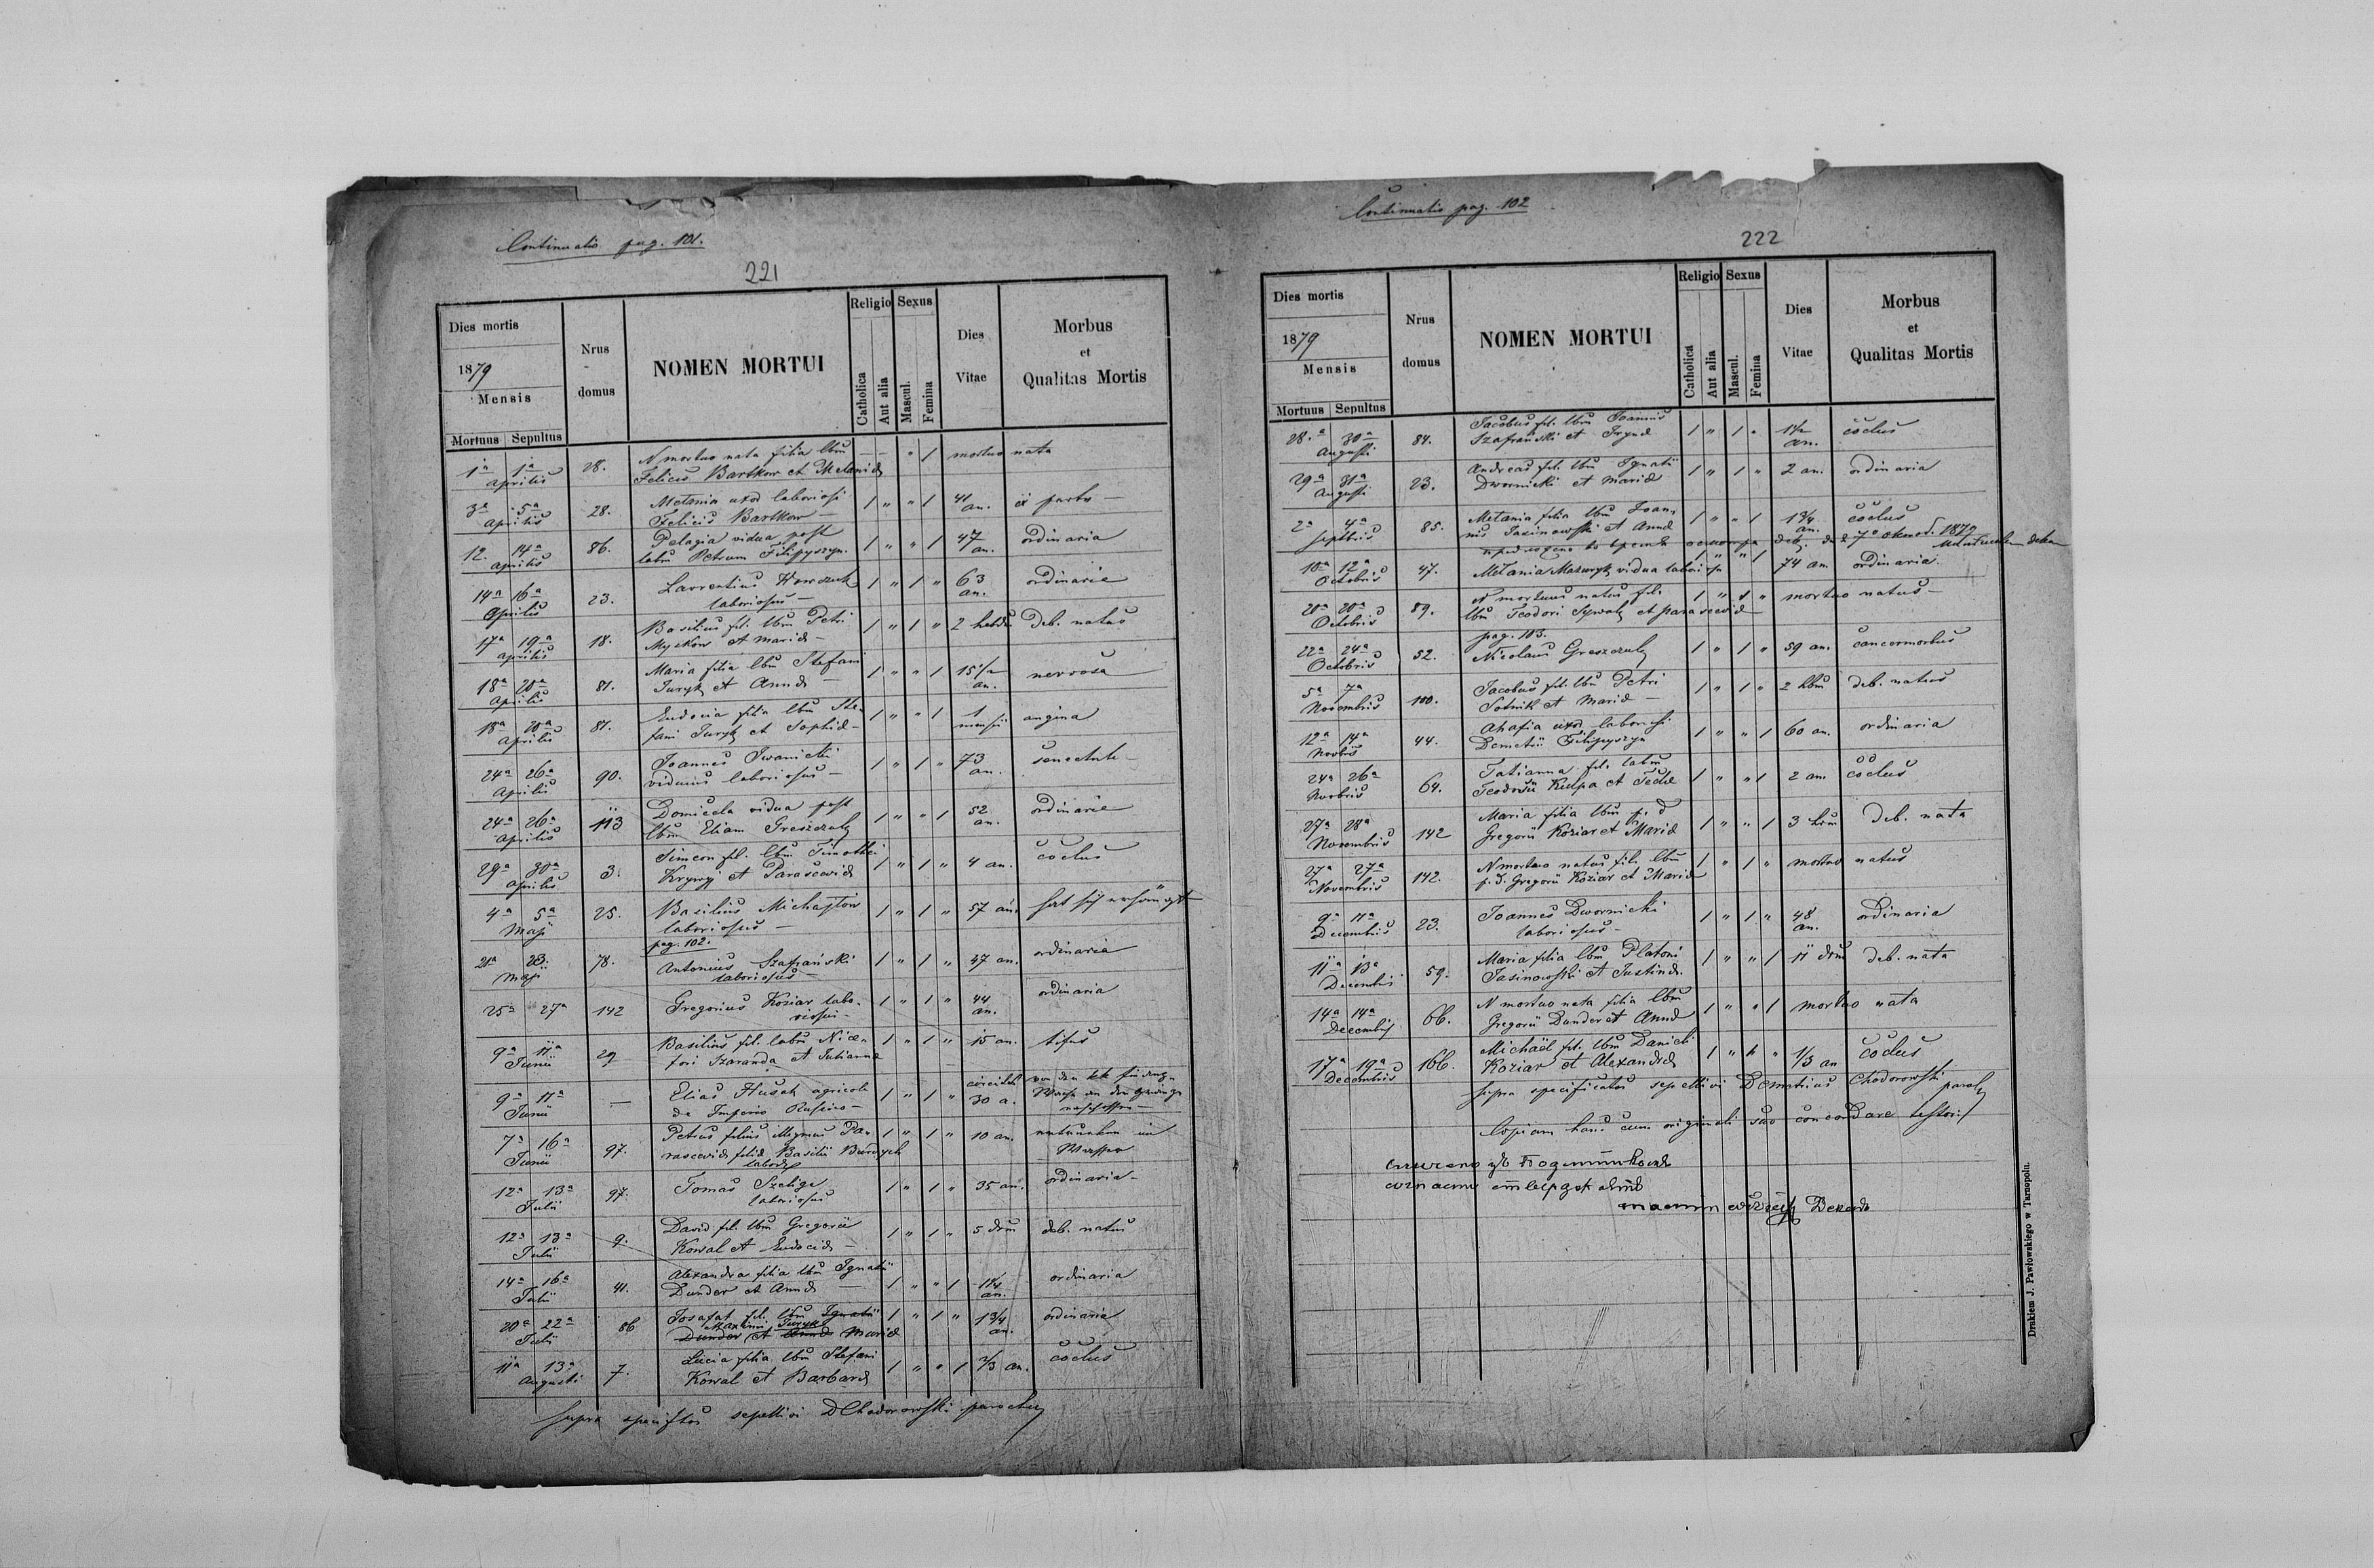 Continuatio pag. 101.
221
Dies mortis
1879
Mensis
Mortuus Sepultus
Nrus domus
NOMEN MORTUI
Religio
Catholica
Aut alia
Sexus
Mascul.
Femina
Dies Vitae
Morbus
et
Qualitas Mortis
1a 1a Aprilis 28. N mortuo nata filia lbm — — " 1 mortuo nata
Felicis Bartkow et Melanid
3a 5a Aprilis 28. Melania uxor laboriosi 1 " " 1 41 an. ex partu —
Felicis Bartkow —
12. 14a Aprilis 86. Pelagia vidua post 1 " " 1 47 an. ordinaria
labm Petrum Filipyszyn.
14a 16a Aprilis 23. Laurentius 1 " 1 " 63 an. ordinaria
laboriosus —
17a 19a Aprilis 18. Basilius fil. lbm Petri 1 " 1 " 2 hebdm Deb. natus
Myckow et Marid —
18a 20a Aprilis 81. Maria filia lbm Stefani 1 " " 1 15 1/2 an. nervosa
Juryk et Annd —
18a 20a Aprilis 81. Eudocia filia lbm Ste- 1 " " 1 1 mensii angina
fani Juryk et Sophid —
24a 26a Aprilis 90. Joannes Iwanicki 1 " 1 " 73 an. senectute —
viduus laboriosus —
24a 26a Aprilis 113 Domicela vidua post 1 " " 1 52 an. ordinaria
lbm Eliam Greszczuk
29a 30a Aprilis 3. Simeon fil. lbm Timothei 1 " 1 " 4 an. coclus
Krywyj et Parascevid
4a 5a Maji 25. Basilius Michajlow 1 " 1 " 57 an. hat sich erhängt
laboriosus —
pag. 102.
21a 23. Maji 78. Antonius Szafrański 1 " 1 " 47 an. ordinaria
laboriosus —
25a 27a 142 Gregorius Koziar labo- 1 " 1 " 44 an. ordinaria
riosus —
9a 11a Junii 29 Basilius fil. labm Nice- 1 " 1 " 15 an. tifus
fori Szaranda et Julianna
9a 11a Junii — Elias Husak agricola 1 " 1 " 30 a. von der kk
de Imperio Russico — Wache an der
7a 16a Junii 97. Petrus filius illegmus Pa- 1 " 1 " 10 an. ertrunken im
rascevid filid Basilii Wasser
12a 13a Julii 97. Tomas Szeliga 1 " 1 " 35 an. ordinaria —
laboriosus
12a 13a Julii 9. David fil. lbm Gregorii 1 " 1 " 5 drm deb. natus
Kowal et Eudocid —
14a 16a Julii 41. Alexandra filia lbm Ignatii 1 " " 1 1 1/4 an. ordinaria
Dunder et Annd —
20a 22a Julii 86 Josafat fil. lbm Ignatii 1 " 1 " 1 3/4 an. ordinaria
Maximi Juryk
Dunder et Annd Marid
11a 13a Augusti 7. Lucia filia lbm Stefani 1 " " 1 2/3 an. coclus
Kowal et Barbard
supra specifctos sepelivi DChodorowski parochus
Continuatio pag. 102
222
Dies mortis
1879
Mensis
Mortuus Sepultus
Nrus domus
NOMEN MORTUI
Religio
Catholica
Aut alia
Sexus
Mascul.
Femina
Dies Vitae
Morbus
et
Qualitas Mortis
28.a 30a Augusti 84. Jacobus fil. lbm Joannis 1 " 1 " 1 1/2 an. coclus
Szafrański et Irynd
29a 31a Augusti 23. Andreas fil. lbm Ignatii 1 " 1 " 2 an. ordinaria
Dwornicki et Marid
2a 4a Septbris 85. Melania filia lbm Joan- 1 " " 1 1 3/4 an. coclus
nis Jasinowski et Annd
10a 12a Octobris 47. Melania Mazuryk vidua laboriosa 1 " " 1 74 an. ordinaria
20a 20a Octobris 89. N mortuus natus fil. 1 " 1 " mortuo natus —
lbm Teodori Sywak et parascevid
pag. 103.
22a 24a Octobris 52. Nicolaus Greszczuk 1 " 1 " 59 an. cancermorbus
5a 7a Novembris 100. Jacobus fil. lbm Petri 1 " 1 " 2 hbm deb. natus
Sotnik et Marid —
12a 14a Novbris 44. Ahafia uxor laboriosi 1 " " 1 60 an. ordinaria
Demetrii Filipyszyn
24a 26a Novbris 64. Tatianna fil. labm 1 " " 1 2 an. coclus
Teodosii Kulpa et Tecld
27a 28a Novembris 142 Maria filia lbm p. d 1 " " 1 3 hrm deb. nata
Gregorii Koziar et Marid
27a 27a Novembris 142. N mortuo natus fil. lbm 1 " 1 " mortuo natus
p. d. Gregorii Koziar et Marid
9a 11a Decembris 23. Joannes Dwornicki 1 " 1 " 48 an. ordinaria
laboriosus —
11a 13a Decembris 59. Maria filia lbm Platoni 1 " " 1 11 drm deb. nata
Jasinowski et Justind.
14a 14a Decembris 66. N mortuo nata filia lbm 1 " " 1 mortuo nata
Gregorii Dunder et Annd
17a 19a Decembris 166. Michaël fil. lbm Danieli 1 " 1 " 1/3 an coclus
Koziar et Alexandrd
supra specificatos sepelivi Demetrius Chodorowski paroch
Copiam hanc cum originali suo concordare testor
Drukiem J. Pawłowskiego w Tarnopolu.